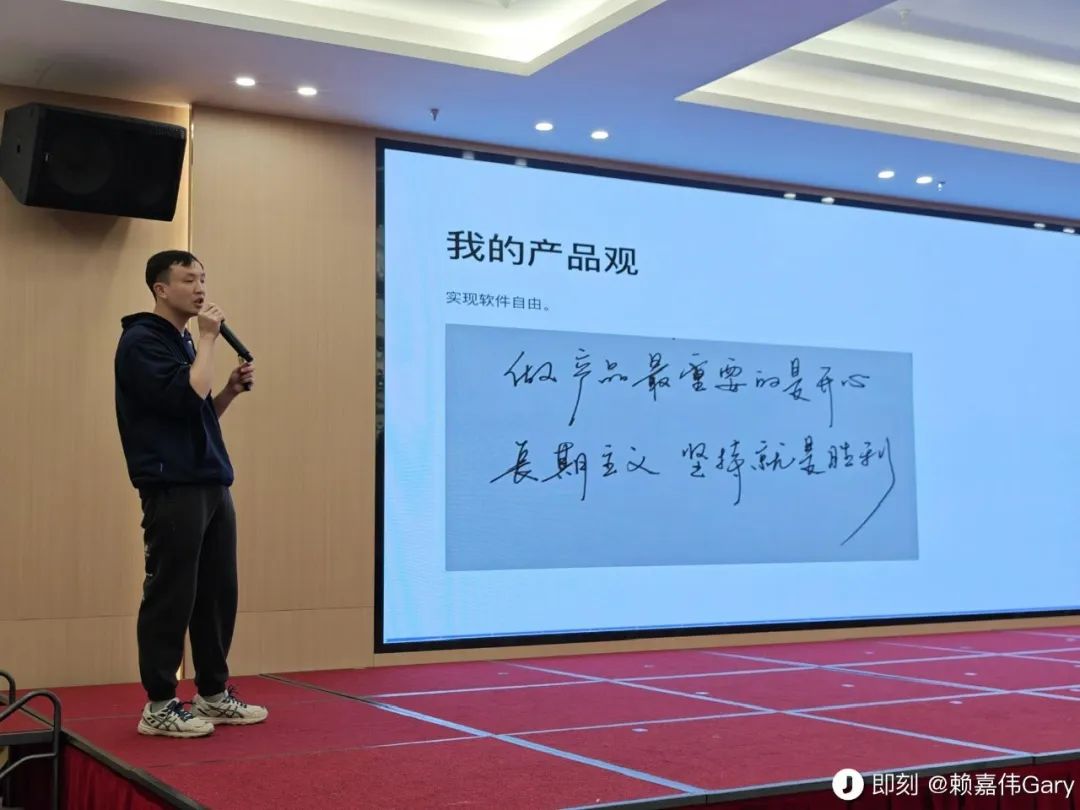 我的产品观
实现软件自由。
做产品最重要的是开心
長期主义 坚持就是胜利
即刻 @赖嘉伟Gary